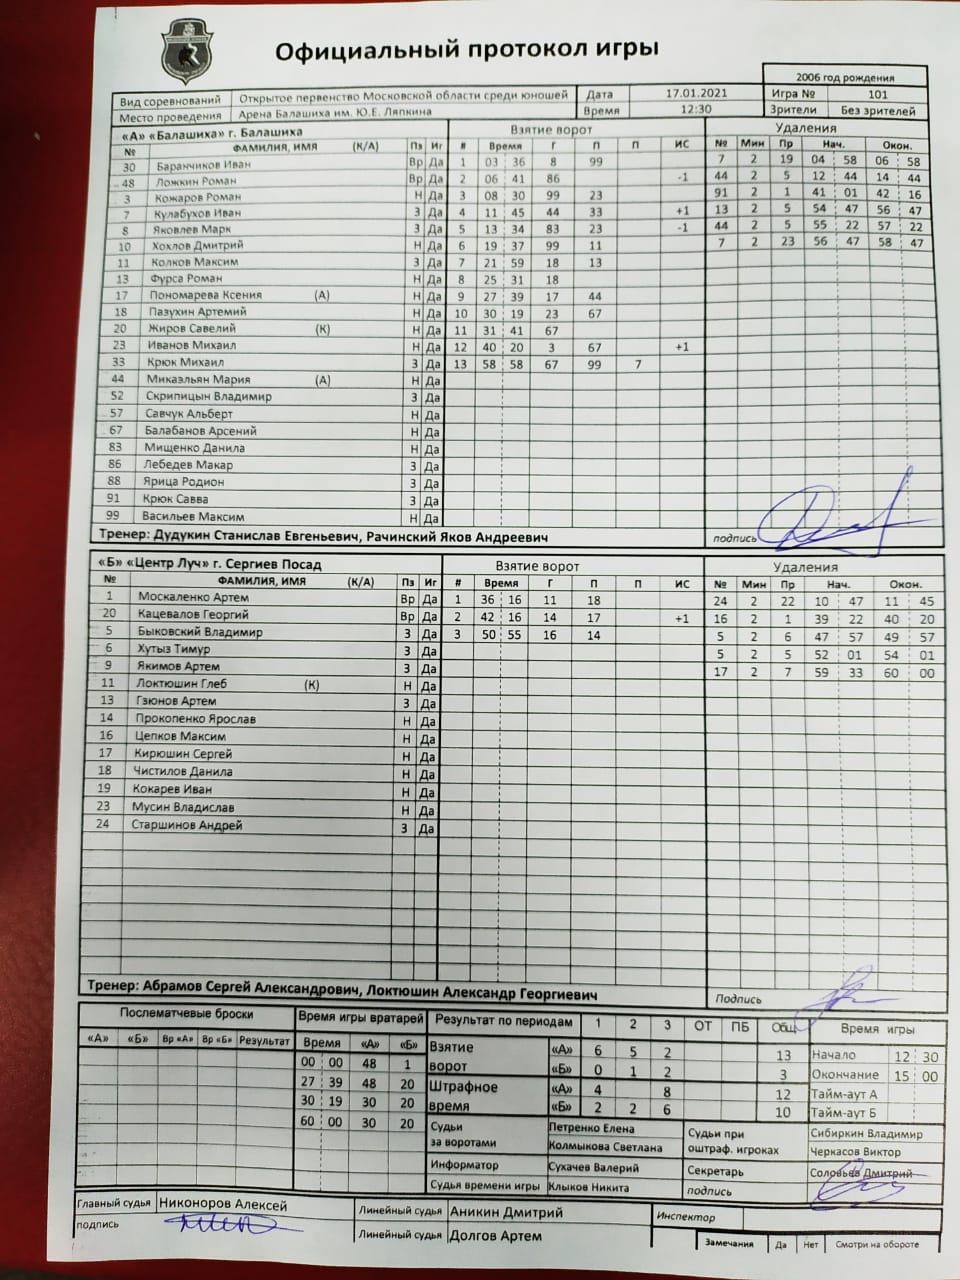 Официальный протокол игры
2006 год рождения
Вид соревнований Открытое первенство Московской области среди юношей Дата 17.01.2021 Игра № 101
Место проведения Арена Балашиха им. Ю.Е. Ляпкина Время 12:30 Зрители Без зрителей
«А» «Балашиха» г. Балашиха Взятие ворот Удаления
№ ФАМИЛИЯ, ИМЯ (К/А) Пз Иг # Время Г П П ИС № Мин Пр Нач. Окон.
30 Баранчиков Иван Вр Да 1 03 36 8 99 7 2 19 04 58 06 58
48 Ложкин Роман Вр Да 2 06 41 86 -1 44 2 5 12 44 14 44
3 Кожаров Роман Н Да 3 08 30 99 23 91 2 1 41 01 42 16
7 Кулабухов Иван З Да 4 11 45 44 33 +1 13 2 5 54 47 56 47
8 Яковлев Марк З Да 5 13 34 83 23 -1 44 2 5 55 22 57 22
10 Хохлов Дмитрий Н Да 6 19 37 99 11 7 2 23 56 47 58 47
11 Колков Максим З Да 7 21 59 18 13
13 Фурса Роман Н Да 8 25 31 18
17 Пономарева Ксения (А) Н Да 9 27 39 17 44
18 Пазухин Артемий Н Да 10 30 19 23 67
20 Жиров Савелий (К) Н Да 11 31 41 67
23 Иванов Михаил Н Да 12 40 20 3 67 +1
33 Крюк Михаил З Да 13 58 58 67 99 7
44 Микаэльян Мария (А) Н Да
52 Скрипицын Владимир З Да
57 Савчук Альберт Н Да
67 Балабанов Арсений Н Да
83 Мищенко Данила Н Да
86 Лебедев Макар З Да
88 Ярица Родион З Да
91 Крюк Савва З Да
99 Васильев Максим Н Да
Тренер: Дудукин Станислав Евгеньевич, Рачинский Яков Андреевич подпись
«Б» «Центр Луч» г. Сергиев Посад Взятие ворот Удаления
№ ФАМИЛИЯ, ИМЯ (К/А) Пз Иг # Время Г П П ИС № Мин Пр Нач. Окон.
1 Москаленко Артем Вр Да 1 36 16 11 18 24 2 22 10 47 11 45
20 Кацевалов Георгий Вр Да 2 42 16 14 17 +1 16 2 1 39 22 40 20
5 Быковский Владимир З Да 3 50 55 16 14 5 2 6 47 57 49 57
6 Хутыз Тимур З Да 5 2 5 52 01 54 01
9 Якимов Артем З Да 17 2 7 59 33 60 00
11 Локтюшин Глеб (К) Н Да
13 Гзюнов Артем З Да
14 Прокопенко Ярослав Н Да
16 Цепков Максим Н Да
17 Кирюшин Сергей Н Да
18 Чистилов Данила Н Да
19 Кокарев Иван Н Да
23 Мусин Владислав Н Да
24 Старшинов Андрей З Да
Тренер: Абрамов Сергей Александрович, Локтюшин Александр Георгиевич Подпись
Послематчевые броски Время игры вратарей Результат по периодам 1 2 3 ОТ ПБ Общ Время игры
«А» «Б» Вр «А» Вр «Б» Результат Время «А» «Б» Взятие ворот «А» 6 5 2 13 Начало 12 30
00 00 48 1 «Б» 0 1 2 3 Окончание 15 00
27 39 48 20 Штрафное время «А» 4 8 12 Тайм-аут А
30 19 30 20 «Б» 2 2 6 10 Тайм-аут Б
60 00 30 20 Судьи за воротами Петренко Елена Судьи при оштраф. игроках Сибиркин Владимир
Колмыкова Светлана Черкасов Виктор
Информатор Сухачев Валерий Секретарь Соловьев Дмитрий
Судья времени игры Клыков Никита подпись
Главный судья Никоноров Алексей Линейный судья Аникин Дмитрий Инспектор
подпись Линейный судья Долгов Артем Замечания Да Нет Смотри на обороте